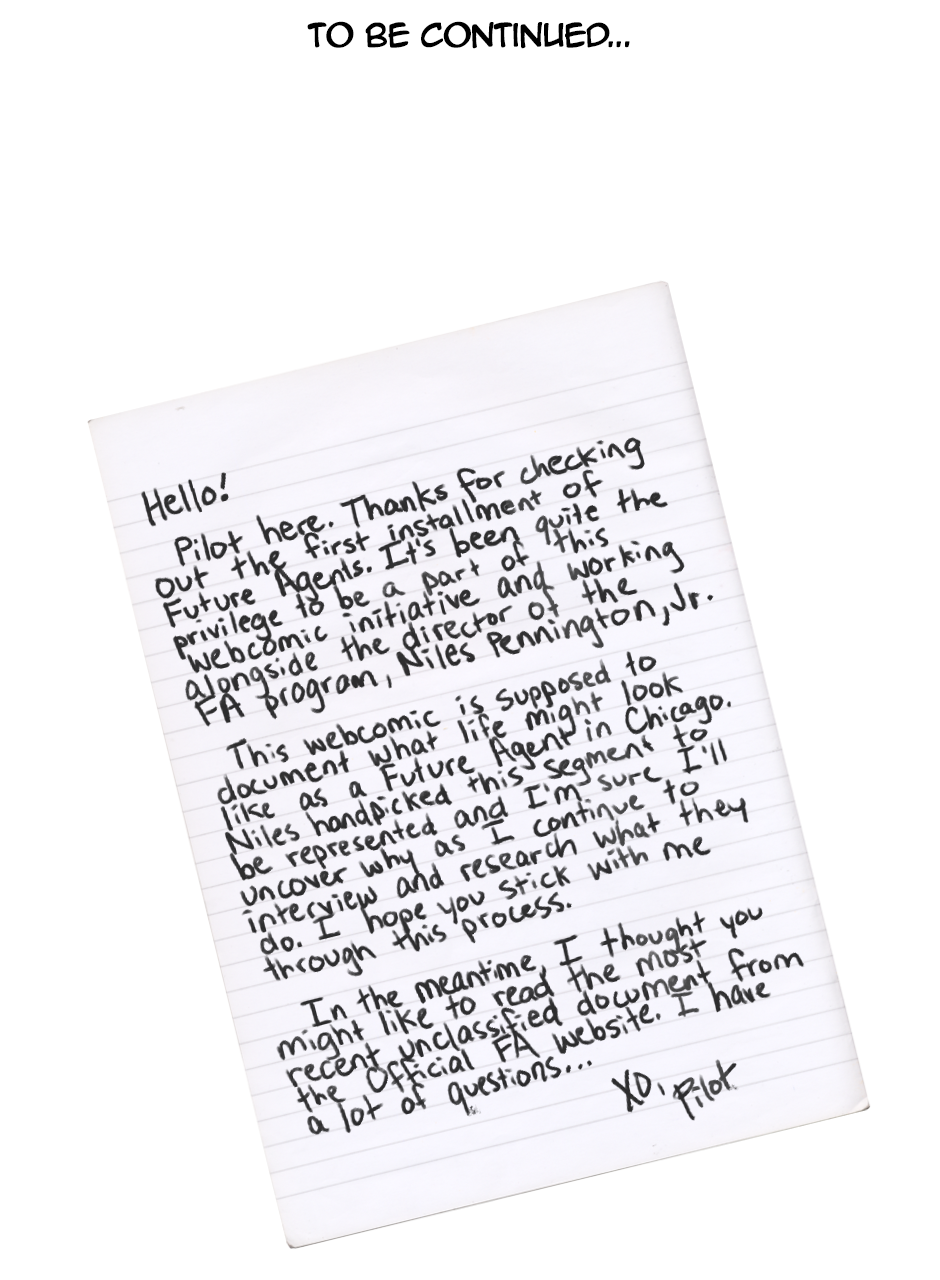 TO BE CONTINUED...
Hello!
Pilot here. Thanks for checking
out the first installment of
Future Agents. It's been quite the
privilege to be a part of this
webcomic initiative and working
alongside the director of the
FA program, Niles Pennington, Jr.
This webcomic is supposed to
document what life might look
like as a Future Agent in Chicago.
Niles handpicked this segment to
be represented and I'm sure I'll
uncover why as I continue to
interview and research what they
do. I hope you stick with me
through this process.
In the meantime, I thought you
might like to read the most
recent unclassified document from
the Official FA website. I have
a lot of questions...
XO, Pilot